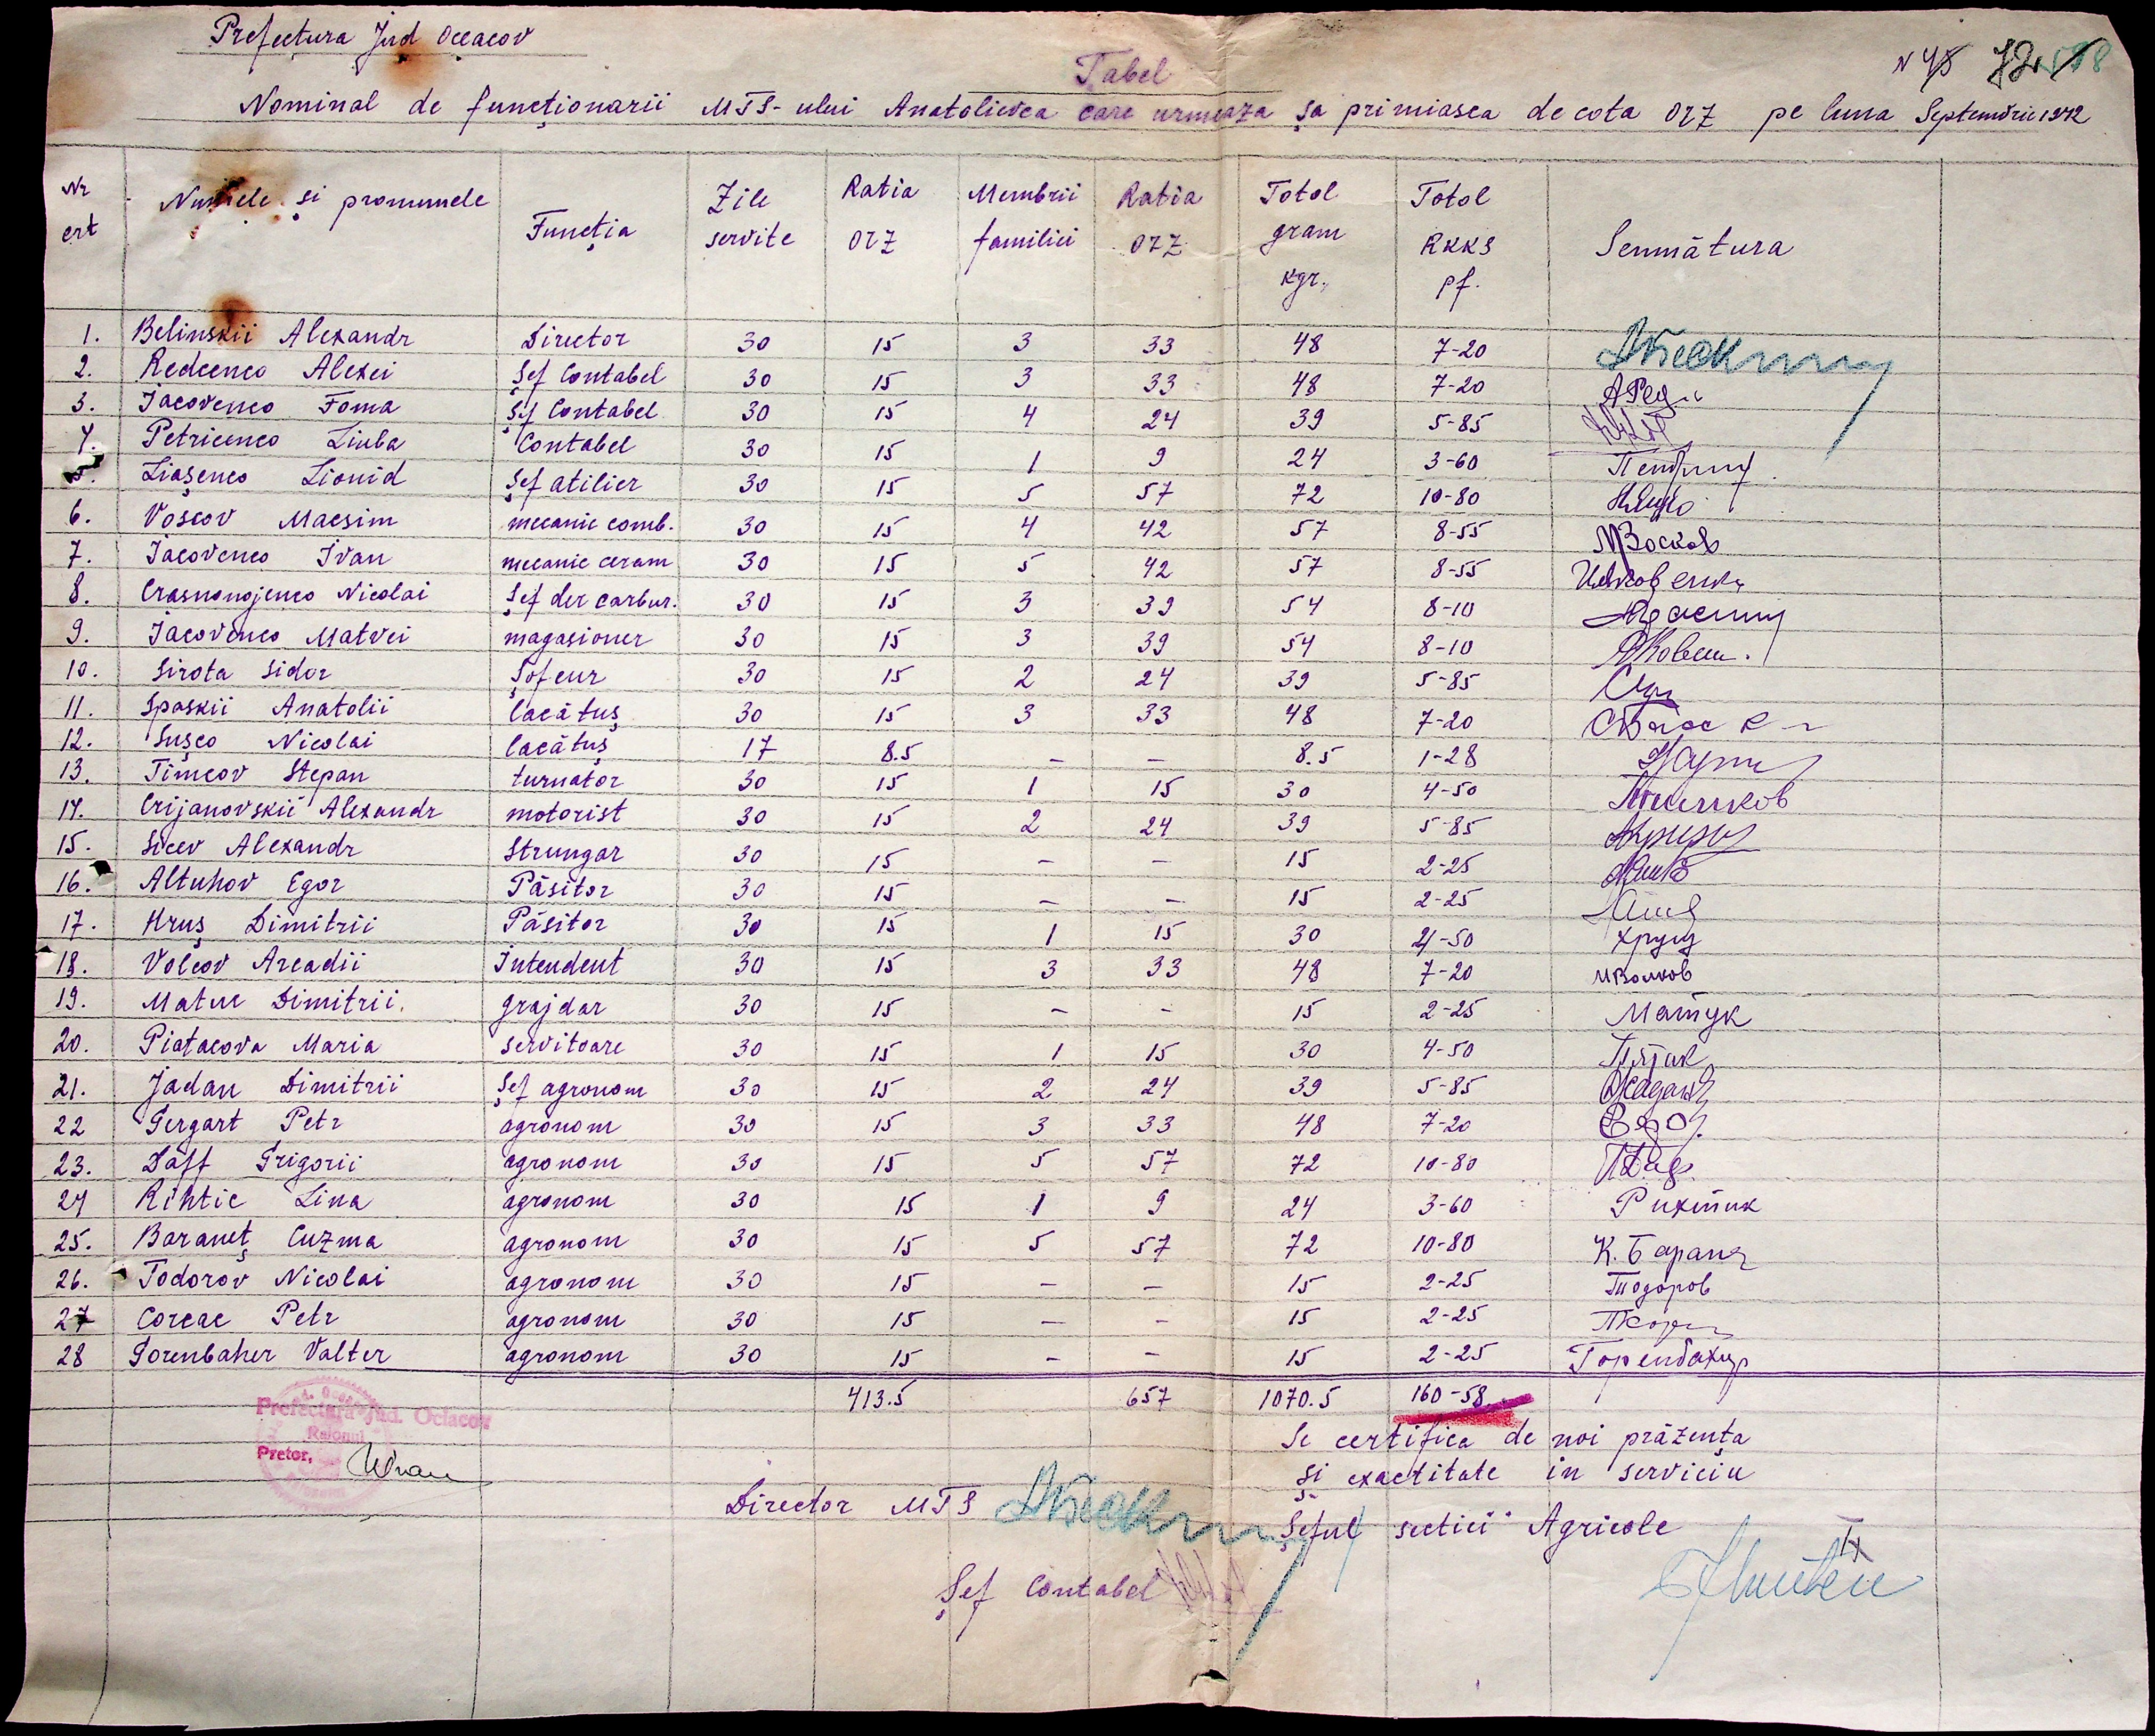 Prefectura Jud Oceacov
Tabel
Nominal de funcționarii MTS-ului Anatolievca care urmeaza șa primiasca de cota orz pe luna Septembrie 1942
Nr crt Numele și pronumele Funcția Zile servite Ratia orz Membrii familiei Ratia orz Totol gram kgr. Totol RKKS pf. Semnătura
1. Belinskii Alexandr Director 30 15 3 33 48 7-20
2. Redcenco Alexei Șef Contabel 30 15 3 33 48 7-20
3. Iacovenco Foma Șef Contabel 30 15 4 24 39 5-85
4. Petricenco Liuba Contabel 30 15 1 9 24 3-60
5. Liașenco Lionid Șef atilier 30 15 5 57 72 10-80
6. Voscov Macsim mecanic comb. 30 15 4 42 57 8-55 МВосков
7. Iacovenco Ivan mecanic ceram 30 15 5 42 57 8-55
8. Crasnonojenco Nicolai Șef der carbur. 30 15 3 39 54 8-10
9. Iacovenco Matvei magasioner 30 15 3 39 54 8-10
10. Sirota Sidor Șofeur 30 15 2 24 39 5-85
11. Spaskii Anatolii lacătuș 30 15 3 33 48 7-20
12. Sușco Nicolai lacătuș 17 8.5 – – 8.5 1-28
13. Timcov Stepan turnator 30 15 1 15 30 4-50
14. Crijanovskii Alexandr motorist 30 15 2 24 39 5-85
15. Sicev Alexandr Strungar 30 15 – – 15 2-25
16. Altuhov Egor Păsitor 30 15 – – 15 2-25
17. Hruș Dimitrii Păsitor 30 15 1 15 30 4-50 Хрущ
18. Volcov Arcadii Intendent 30 15 3 33 48 7-20 Волков
19. Matuc Dimitrii. grajdar 30 15 – – 15 2-25 Матук
20. Piatacova Maria servitoare 30 15 1 15 30 4-50
21. Jadan Dimitrii Șef agronom 30 15 2 24 39 5-85 Жадан
22 Gergart Petr agronom 30 15 3 33 48 7-20
23. Daff Grigorii agronom 30 15 5 57 72 10-80
24 Rihtic Lina agronom 30 15 1 9 24 3-60 Рихтик
25. Baraneț Cuzma agronom 30 15 5 57 72 10-80 К. Баранец
26. Todorov Nicolai agronom 30 15 – – 15 2-25 Тодоров
27 Corcac Petr agronom 30 15 – – 15 2-25
28 Gorenbaher Valter agronom 30 15 – – 15 2-25 Горенбахер
413.5 657 1070.5 160-58
Prefectura Jud. Ociacov
Raionul
Pretor,
Se certifica de noi prăzența
și exactitate in serviciu
Director MTS
Șeful sectiei Agricole
Șef Contabel